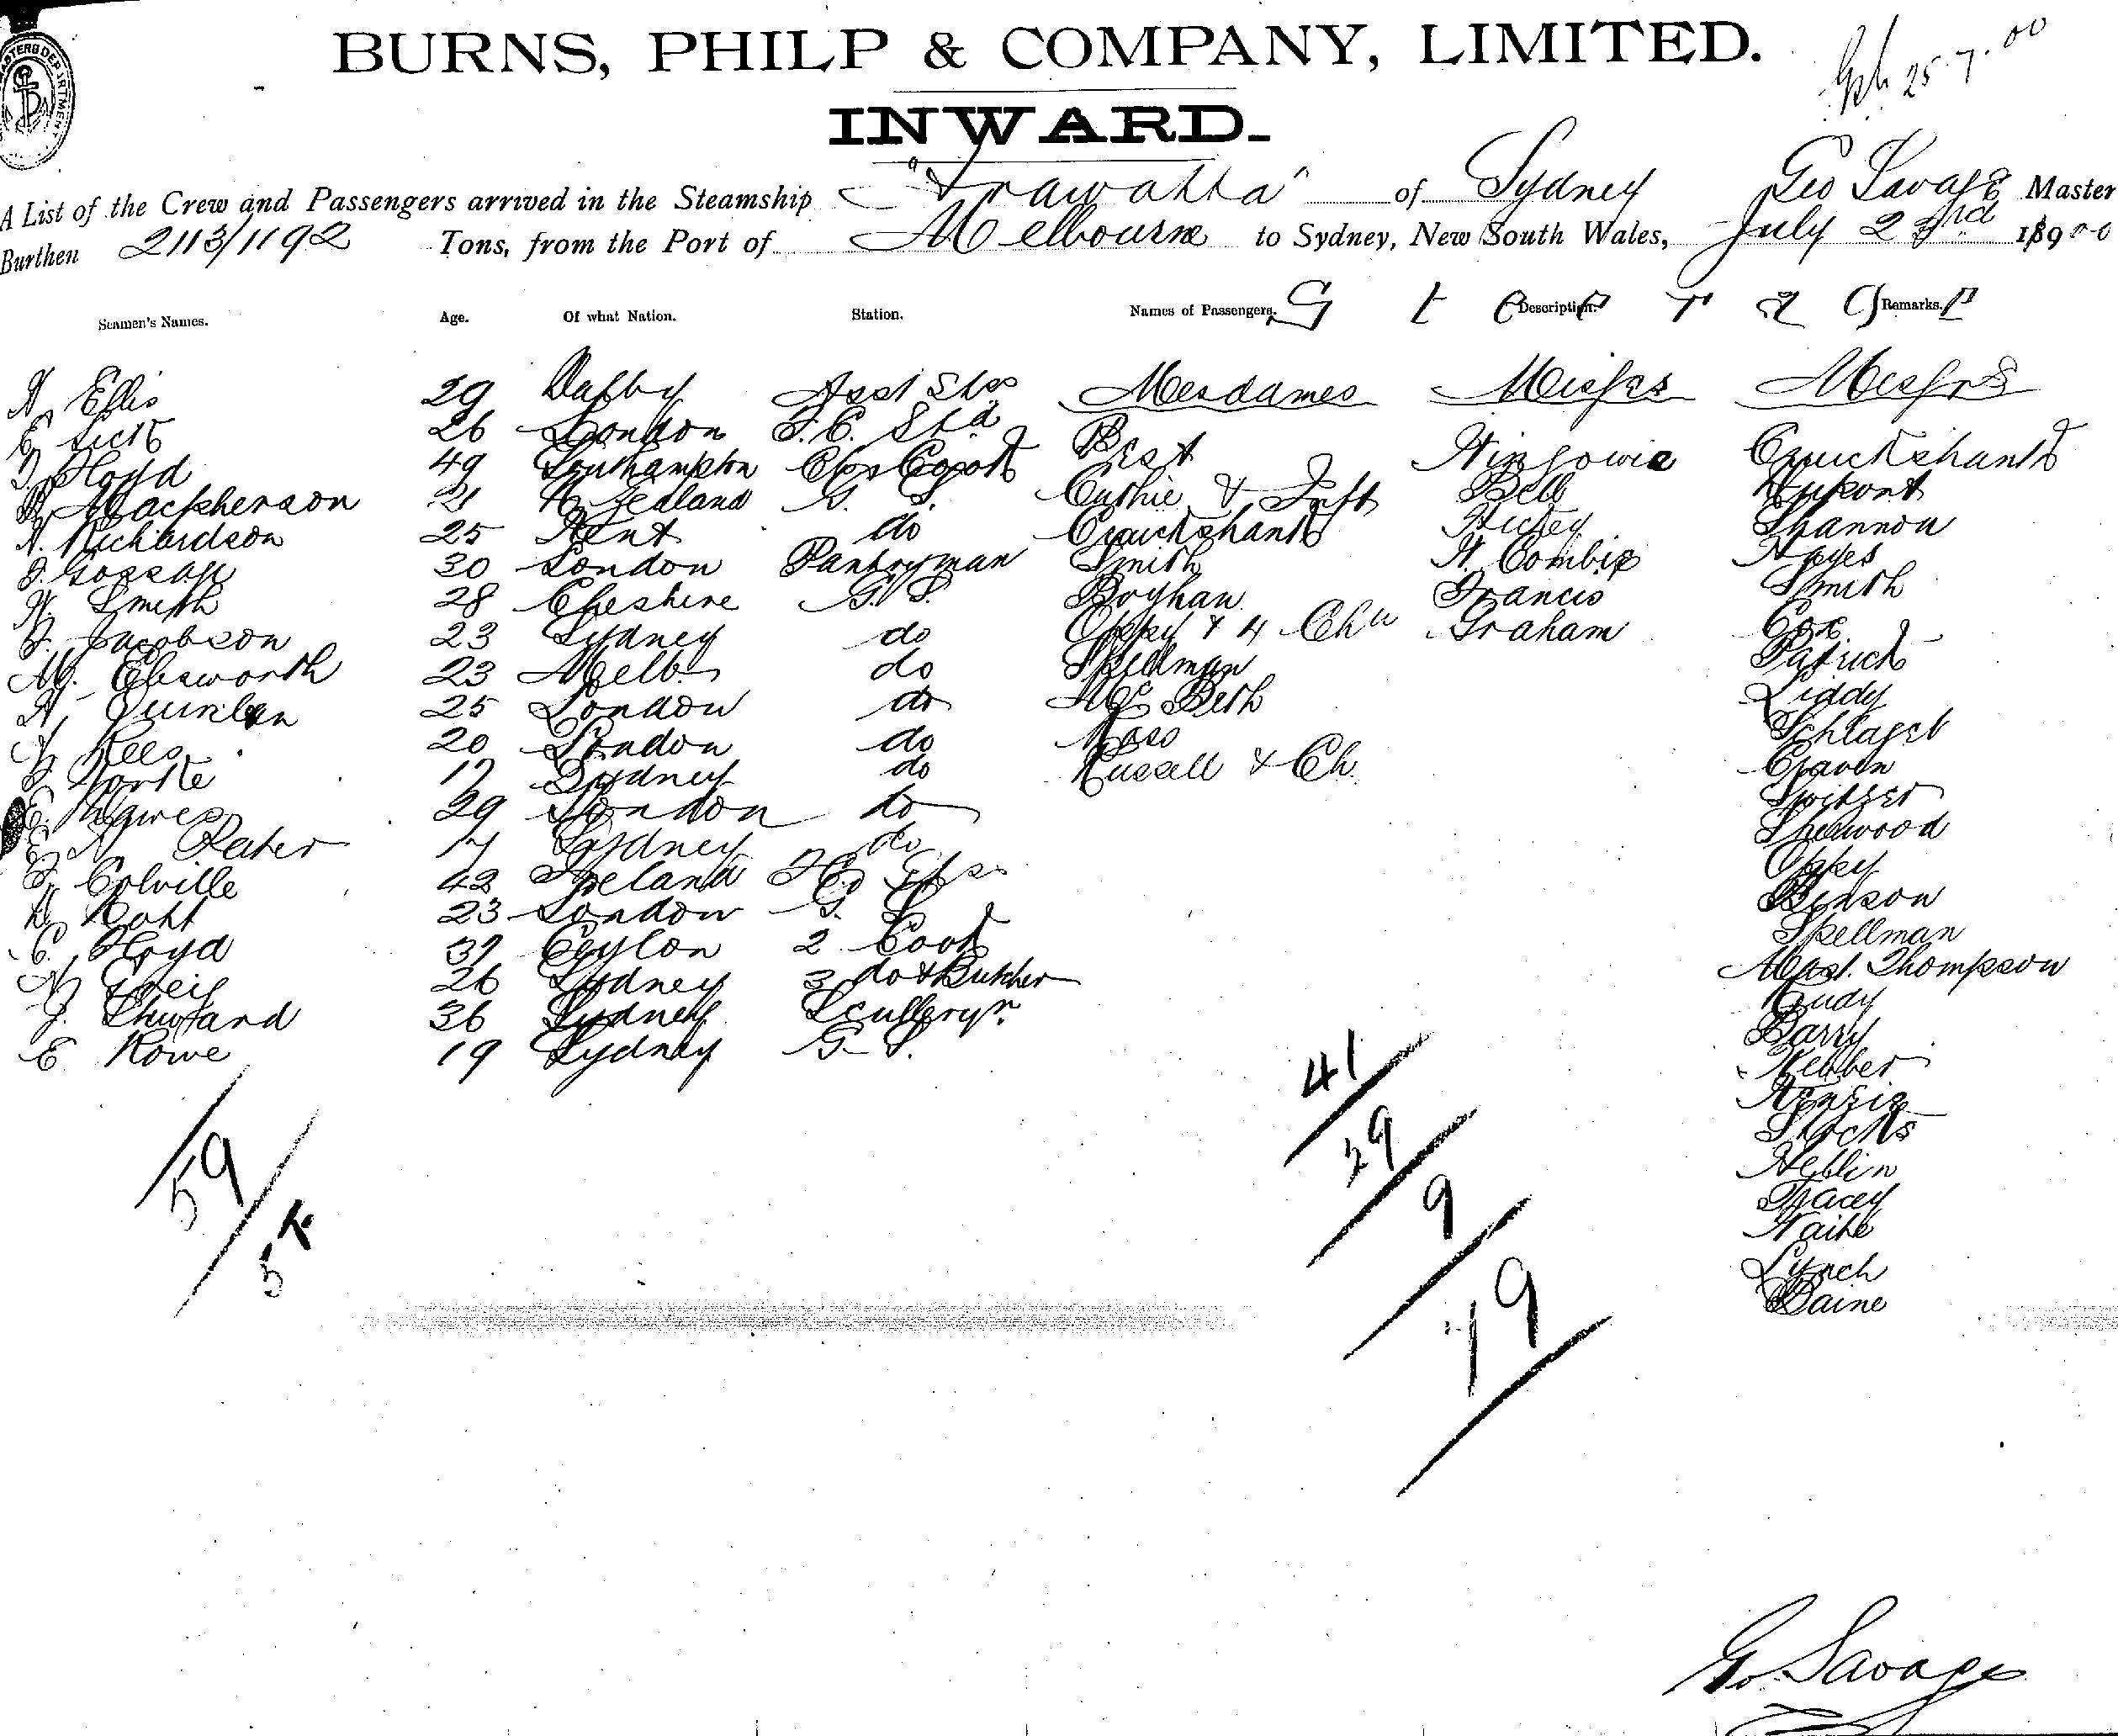 BURNS, PHILP & COMPANY, LIMITED.
25.7.00
INWARD.
A List of the Crew and Passengers arrived in the Steamship "Arawatta" of Sydney Geo Savage Master
Burthen 2113/1192 Tons, from the Port of Melbourne to Sydney, New South Wales, July 23rd 1900
Seamen's Names. Age. Of what Nation. Station. Names of Passengers. Description. Remarks.
Steerage
A Ellis 29 Dalby Asst Stos Mesdames Misses Messrs
E 26 London F.C. Std Best Kingowie Cruickshank
Floyd 49 Southampton Chf Cook Cuthie & Inft Bell Dupont
Macpherson 21 N Zealand G. S. Cruickshank Hickey Shannon
A. Richardson 25 Kent do Smith H. Combie Hayes
30 London Pantryman Boyhan Francis Smith
H. Smith 28 Cheshire G. S. Oppy & 4 Chn Graham Cox
J. Jacobson 23 Sydney do Spellman Patrick
M. Ebsworth 23 Melb do McBeth Liddy
A Quinlan 25 London do Moss Schlaget
Rees 20 London do Russell & Ch. Craven
Yorke 17 Sydney do Switzer
Hawes 29 London do Sherwood
E Pater 17 Sydney do Oppy
Colville 42 Ireland Benson
Roht 23 London G. S. Spellman
C. Floyd 37 Ceylon 2 Cook Mast. Thompson
26 Sydney 3 do & Butcher Cudy
J. 36 Sydney Sculleryn Barry
E Rowe 19 Sydney G. S. Webber
Kenzie
Stocks
Heblin
Tracey
Waite
Lynch
Baine
59
57
41
29
9
79
Geo. Savage